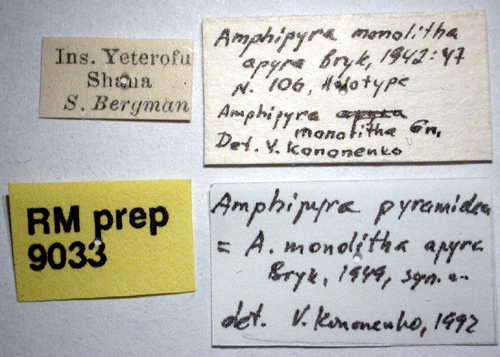 Ins. Yeterofu
Shana
S. Bergman
Amphipyra monolitha
apyra Bryk, 1942:47
N. 106, Holotype
Amphipyra apyra
monolitha Gn.
Det. V. Kononenko
RM prep
9033
Amphipyra pyramidea
= A. monolitha apyra
Bryk, 1949, syn. n.
det. V. Kononenko, 1992